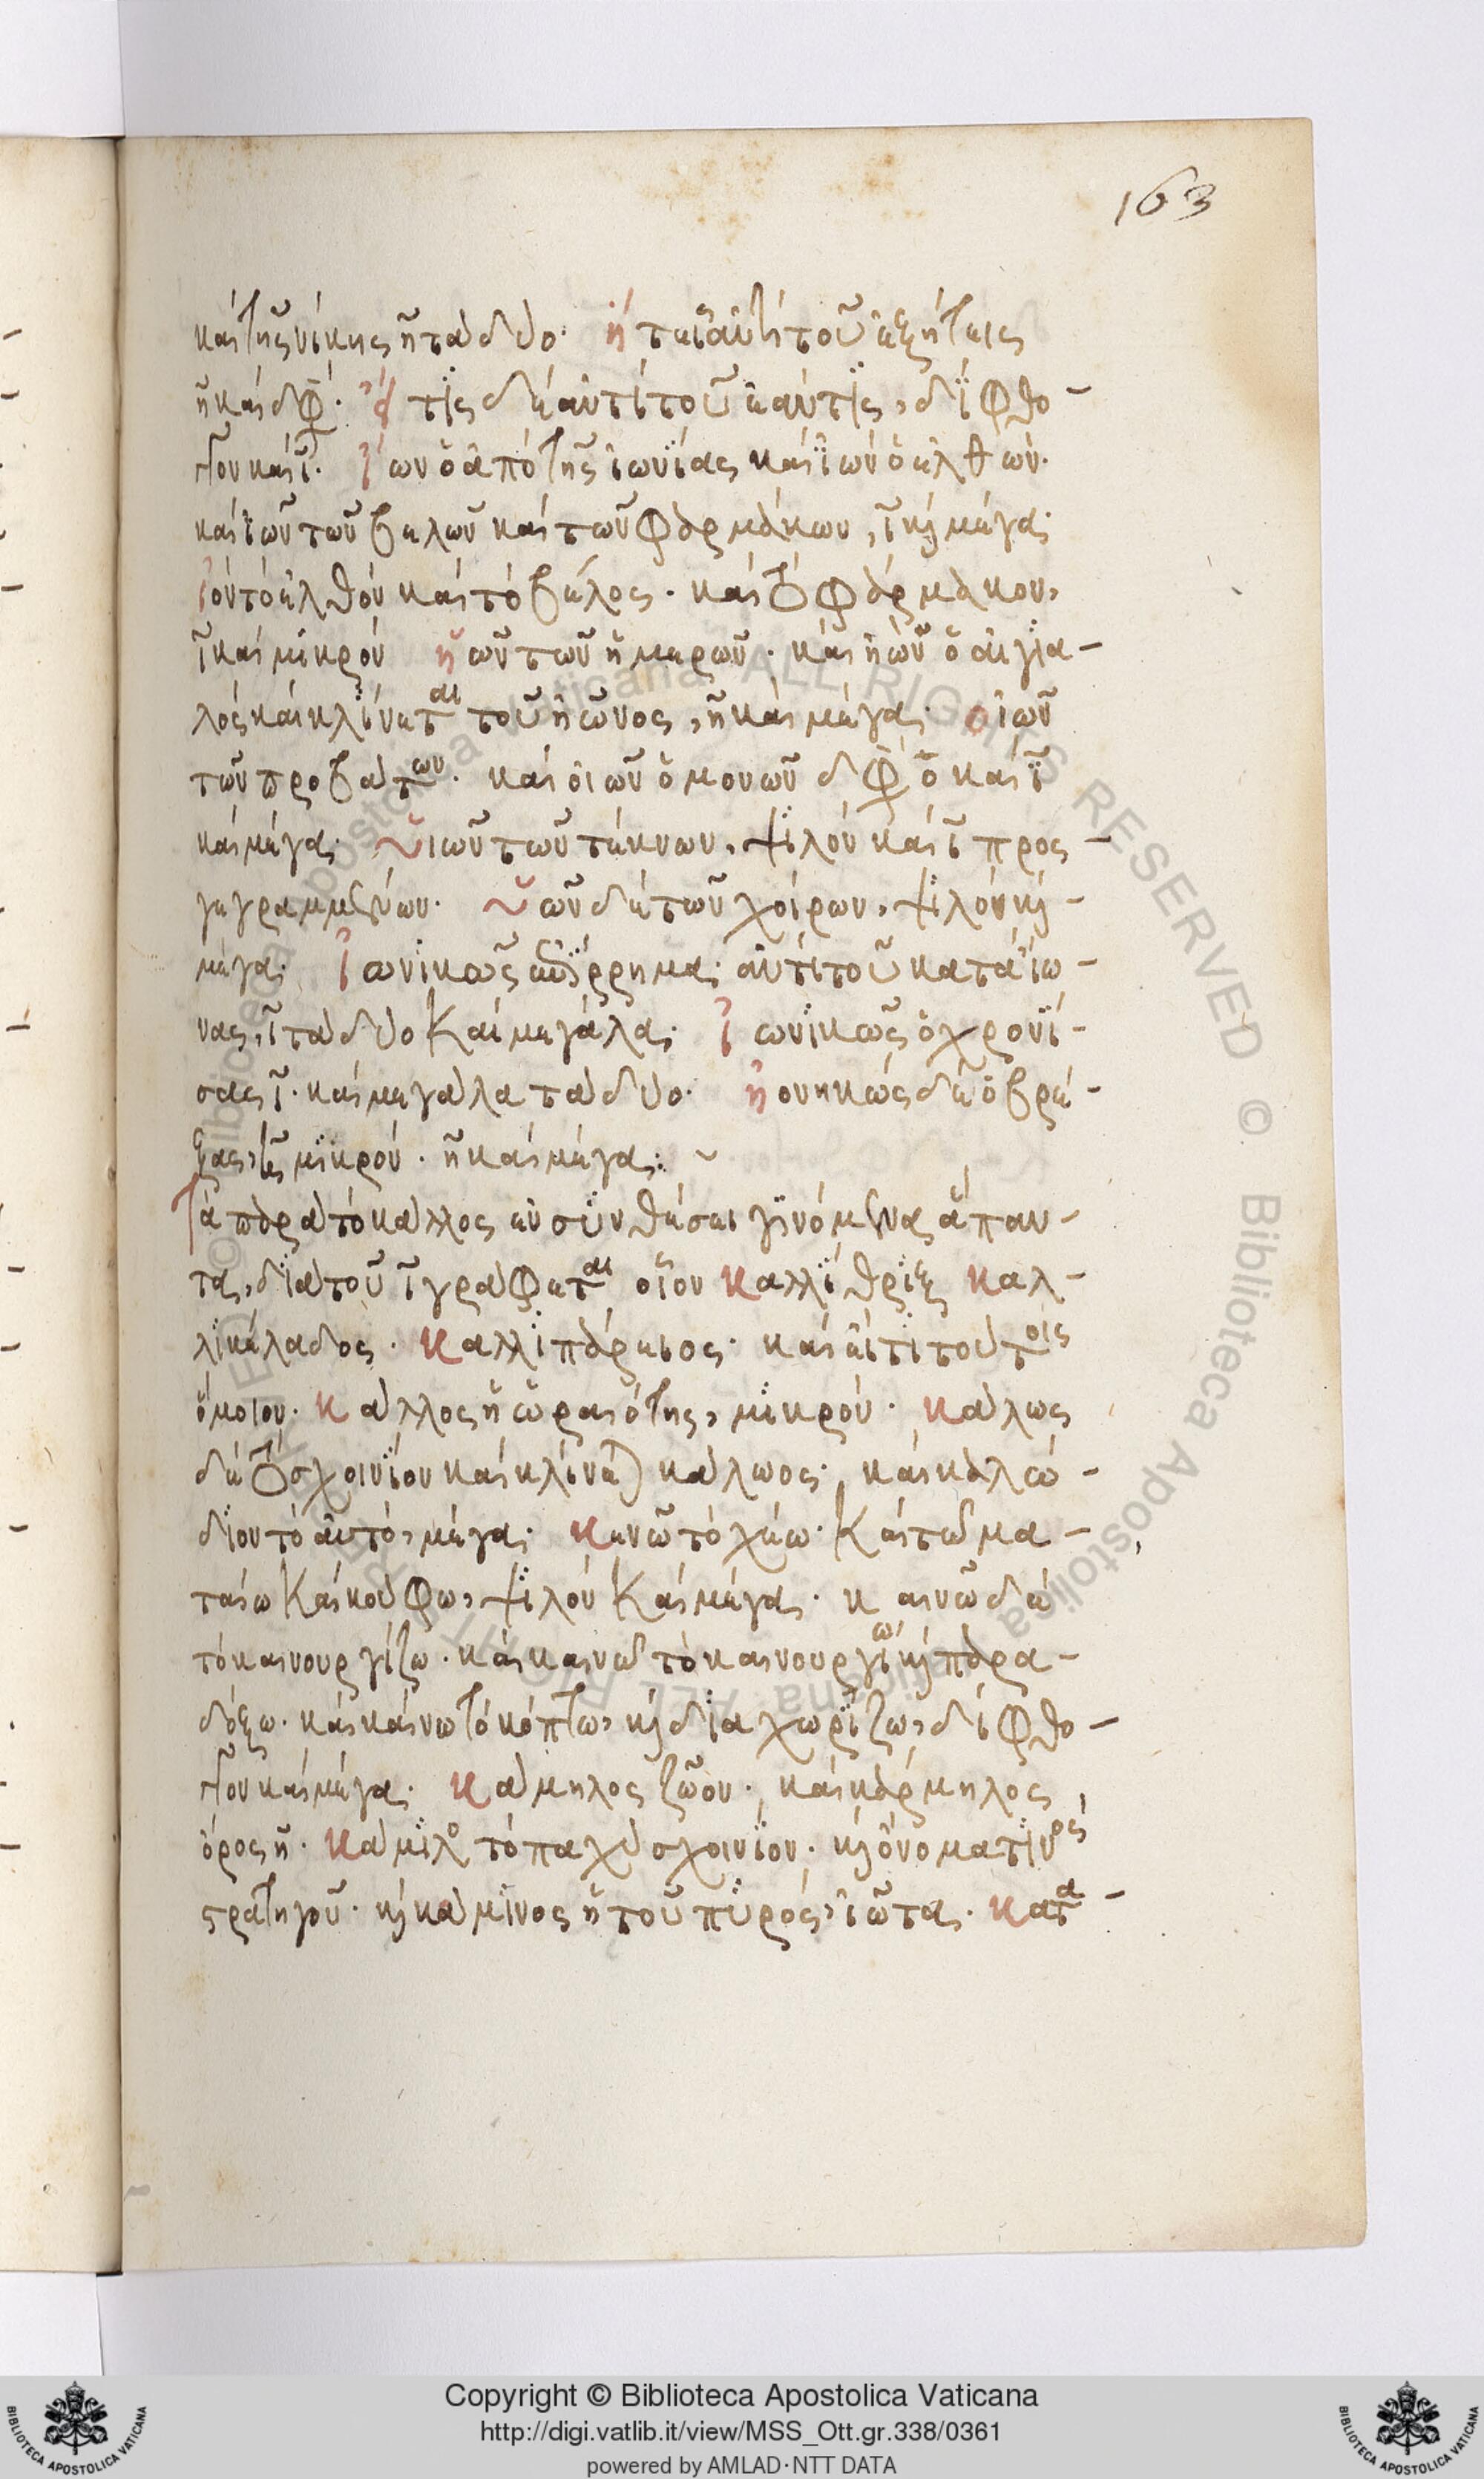 163
καὶ τῆς νίκης η̃ τὰ δύο· ἤτει ἀντὶ τοῦ ἐξήτεις
η̃ καὶ δφ· εἴ τϊς δὲ ἀντὶ τοῦ ἐὰν τὶς, δίφθο-
γγον καὶ ϊ· ἴων ὁ ἀπὸ τῆς ϊωνΐας καὶ ϊὼν ὁ ἐλθὼν·
καὶ ϊῶν τῶν βελῶν καὶ τῶν φαρμάκων, ϊ κ μέγα·
ϊὸν τὸ ἐλθὸν καὶ τὸ βέλος· καὶ τὸ φάρμακον,
ϊ καὶ μικρὸν ἠῶν τῶν ἡμερῶν· καὶ ἠὼν ὁ αἰγϊα-
λὸς καὶ κλΐνεται τοῦ ἠῶνος, η̃ καὶ μέγα· οἰῶν
τῶν προβάτων· καὶ οἰῶν ὁ μονῶν δφ ὂ καὶ ϊ
καὶ μέγα· ὑιῶν τῶν τέκνων, ψϊλὸν καὶ ϊ προς-
γεγραμμένων· ὑῶν δὲ τῶν χοίρων, ψϊλὸν κ-
μέγα· ἰωνϊκῶς ἐπΐρρημα· ἀντὶ τοῦ κατὰ ἴω-
νας, ϊ τὰ δύο καὶ μεγάλα· ἰωνϊκῶς ὁ χρονΐ-
σας ϊ· καὶ μεγάλα τὰ δύο· ἠονηκὼς δὲ ὁ βρέ-
ξας, τὲ μϊκρὸν· η̃ καὶ μέγα:~
Τὰ παρὰ τὸ κάλλος ἐν συνθέσει γϊνόμενα ἅπαν-
τα, δϊὰ τοῦ ϊ γράφεται οἷον καλλΐθρϊξ καλ-
λϊκέλαδος· καλλϊπάρειος· καὶ εἴτϊ τούτοις
ὅμοιον· κάλλος ἡ ὡραιότης, μϊκρὸν· κάλως
δὲ τὸ σχοινΐον καὶ κλίνεται κάλωος· καὶ καλώ-
διον τὸ αὐτὸ, μέγα· κενῶ τὸ χέω· καὶ τῶ μα-
ταίω καὶ κούφω, ψϊλὸν καὶ μέγα· καινῶ δὲ
τὸ καινουργίζω· καὶ καινῶ τὸ καινουργίω κ παρα-
δόξω· καὶ καίνω τὸ κόπτω, κ δϊαχωρΐζω, δίφθο-
γγον καὶ μέγα· κάμηλος ζῶον· καὶ κάρμηλος
ὄρος η̃· κάμϊλος τὸ παχὺ σχοινΐον· κ ὄνομα τϊνὸς
στρατηγοῦ· κ κάμϊνος ἡ τοῦ πυρός, ϊῶτα· κατα-
Copyright © Biblioteca Apostolica Vaticana
http://digi.vatlib.it/view/MSS_Ott.gr.338/0361
powered by AMLAD·NTT DATA